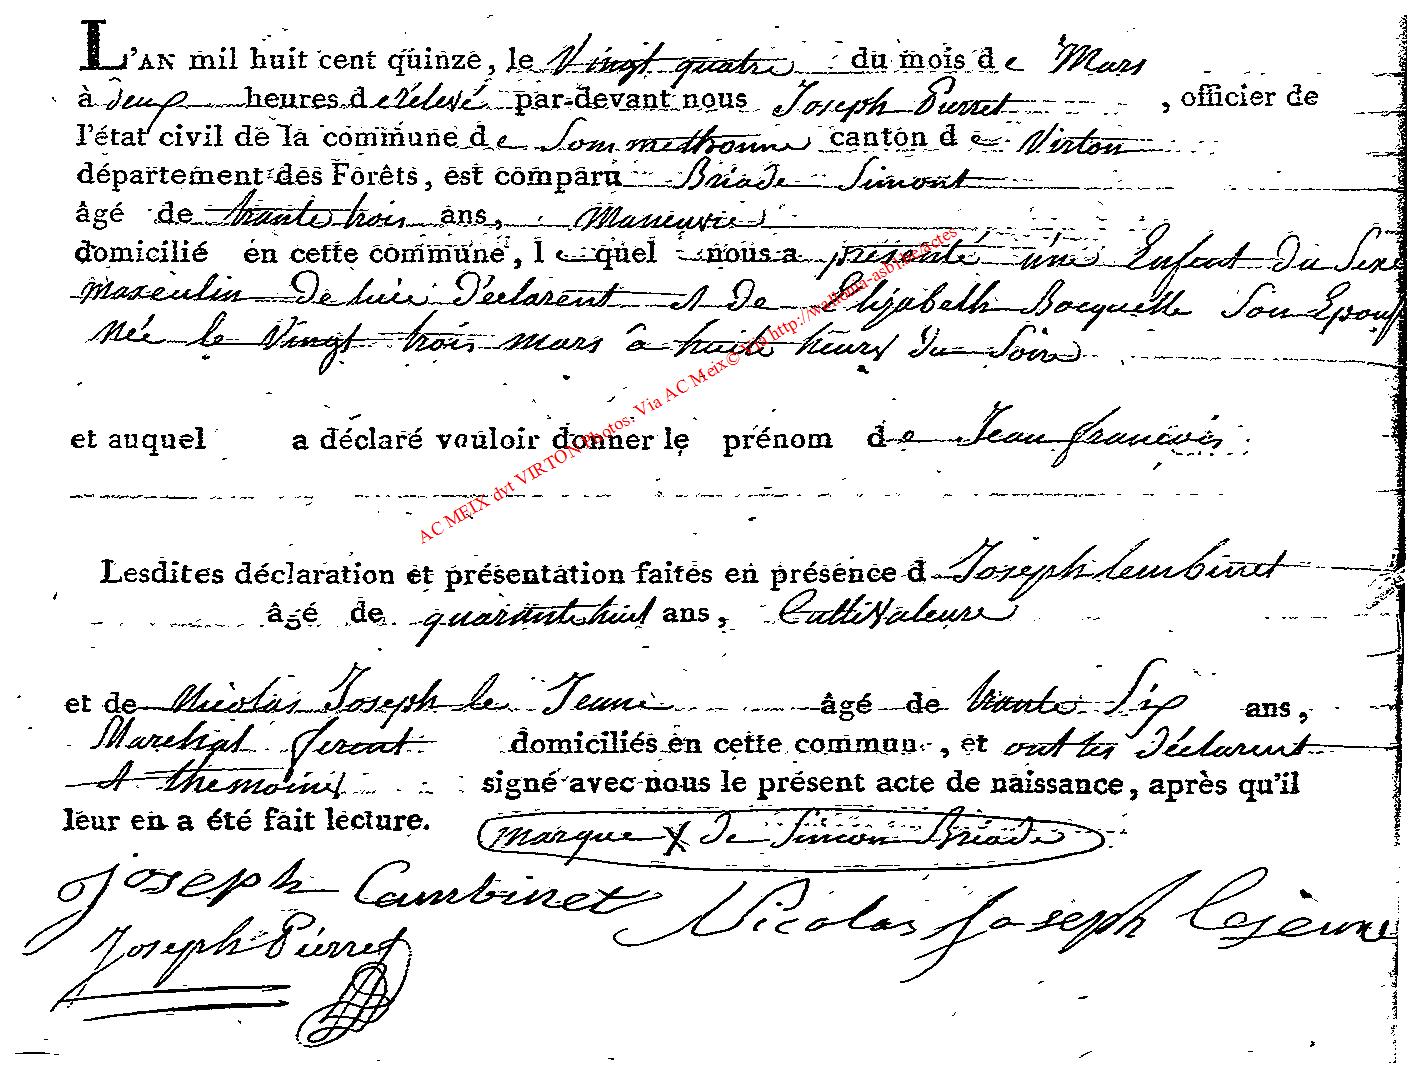 L'AN mil huit cent quinze, le Vingt quatre du mois de Mars
à deux heures de rélevé par-devant nous Joseph Pierret, officier de
l'état civil de la commune de Sommethonne canton de Virton
département des Forêts, est comparu Briade Simont
âgé de trante trois ans, Maneuvre
domicilié en cette commune, lequel nous a présenté une Enfent du Sexe
masculin De luie Déclarent et De Elizabeth Bocquelle Son Epouse
Née le Vingt trois mars à huite heures Du Soire
et auquel a déclaré vouloir donner le prénom de Jean françois
Lesdites déclaration et présentation faites en présence d Joseph Cambinet
âgé de quarante huit ans, Cultivateure
et de Nicolas Joseph le Jeune âgé de trante Six ans,
Marechal ferent domiciliés en cette commun, et ont les déclarent
et themoins signé avec nous le présent acte de naissance, après qu'il
leur en a été fait lecture. marque X de Simon Briade
Joseph Cambinet Nicolas Joseph Lejeune
Joseph Pierret
AC MEIX dvt VIRTON Photos. Via AC Meix© Via http://wallonia-asbl.be/actes